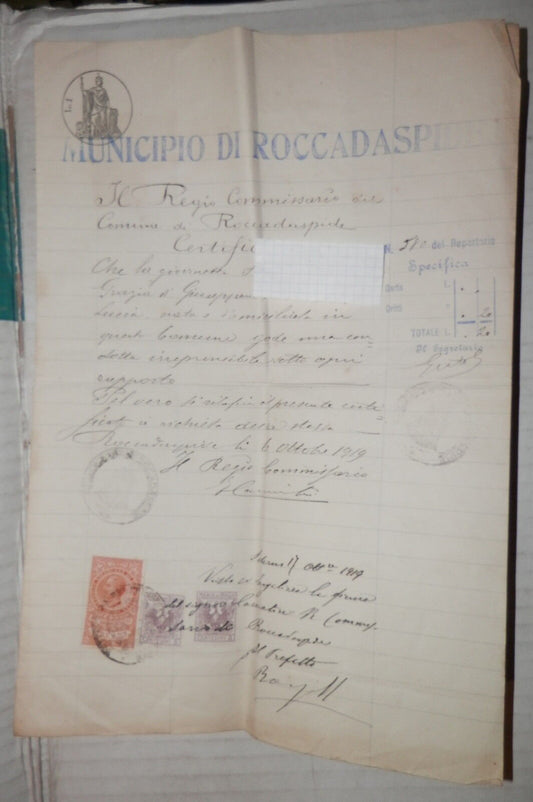 L. 1
MUNICIPIO DI ROCCADASPIDE
Il Regio Commissario del
Comune di Roccadaspide
Certifica
Che la giovanetta
Grazia di Giuseppe
Lucia, nata e domiciliata in
questo Comune gode una con-
dotta irreprensibile sotto ogni
rapporto
Pel vero si rilascia il presente certi-
ficato a richiesta della stessa
Roccadaspide li 6 Ottobre 1919
Il Regio Commissario
N. 520 del Repertorio
Specifica
Carta L.
Dritti 20
TOTALE L. 20
Il Segretario
17 Ottobre 1919
Visto si legalizza la firma
del signor R Commis-
sario di Roccadaspide
Il Prefetto